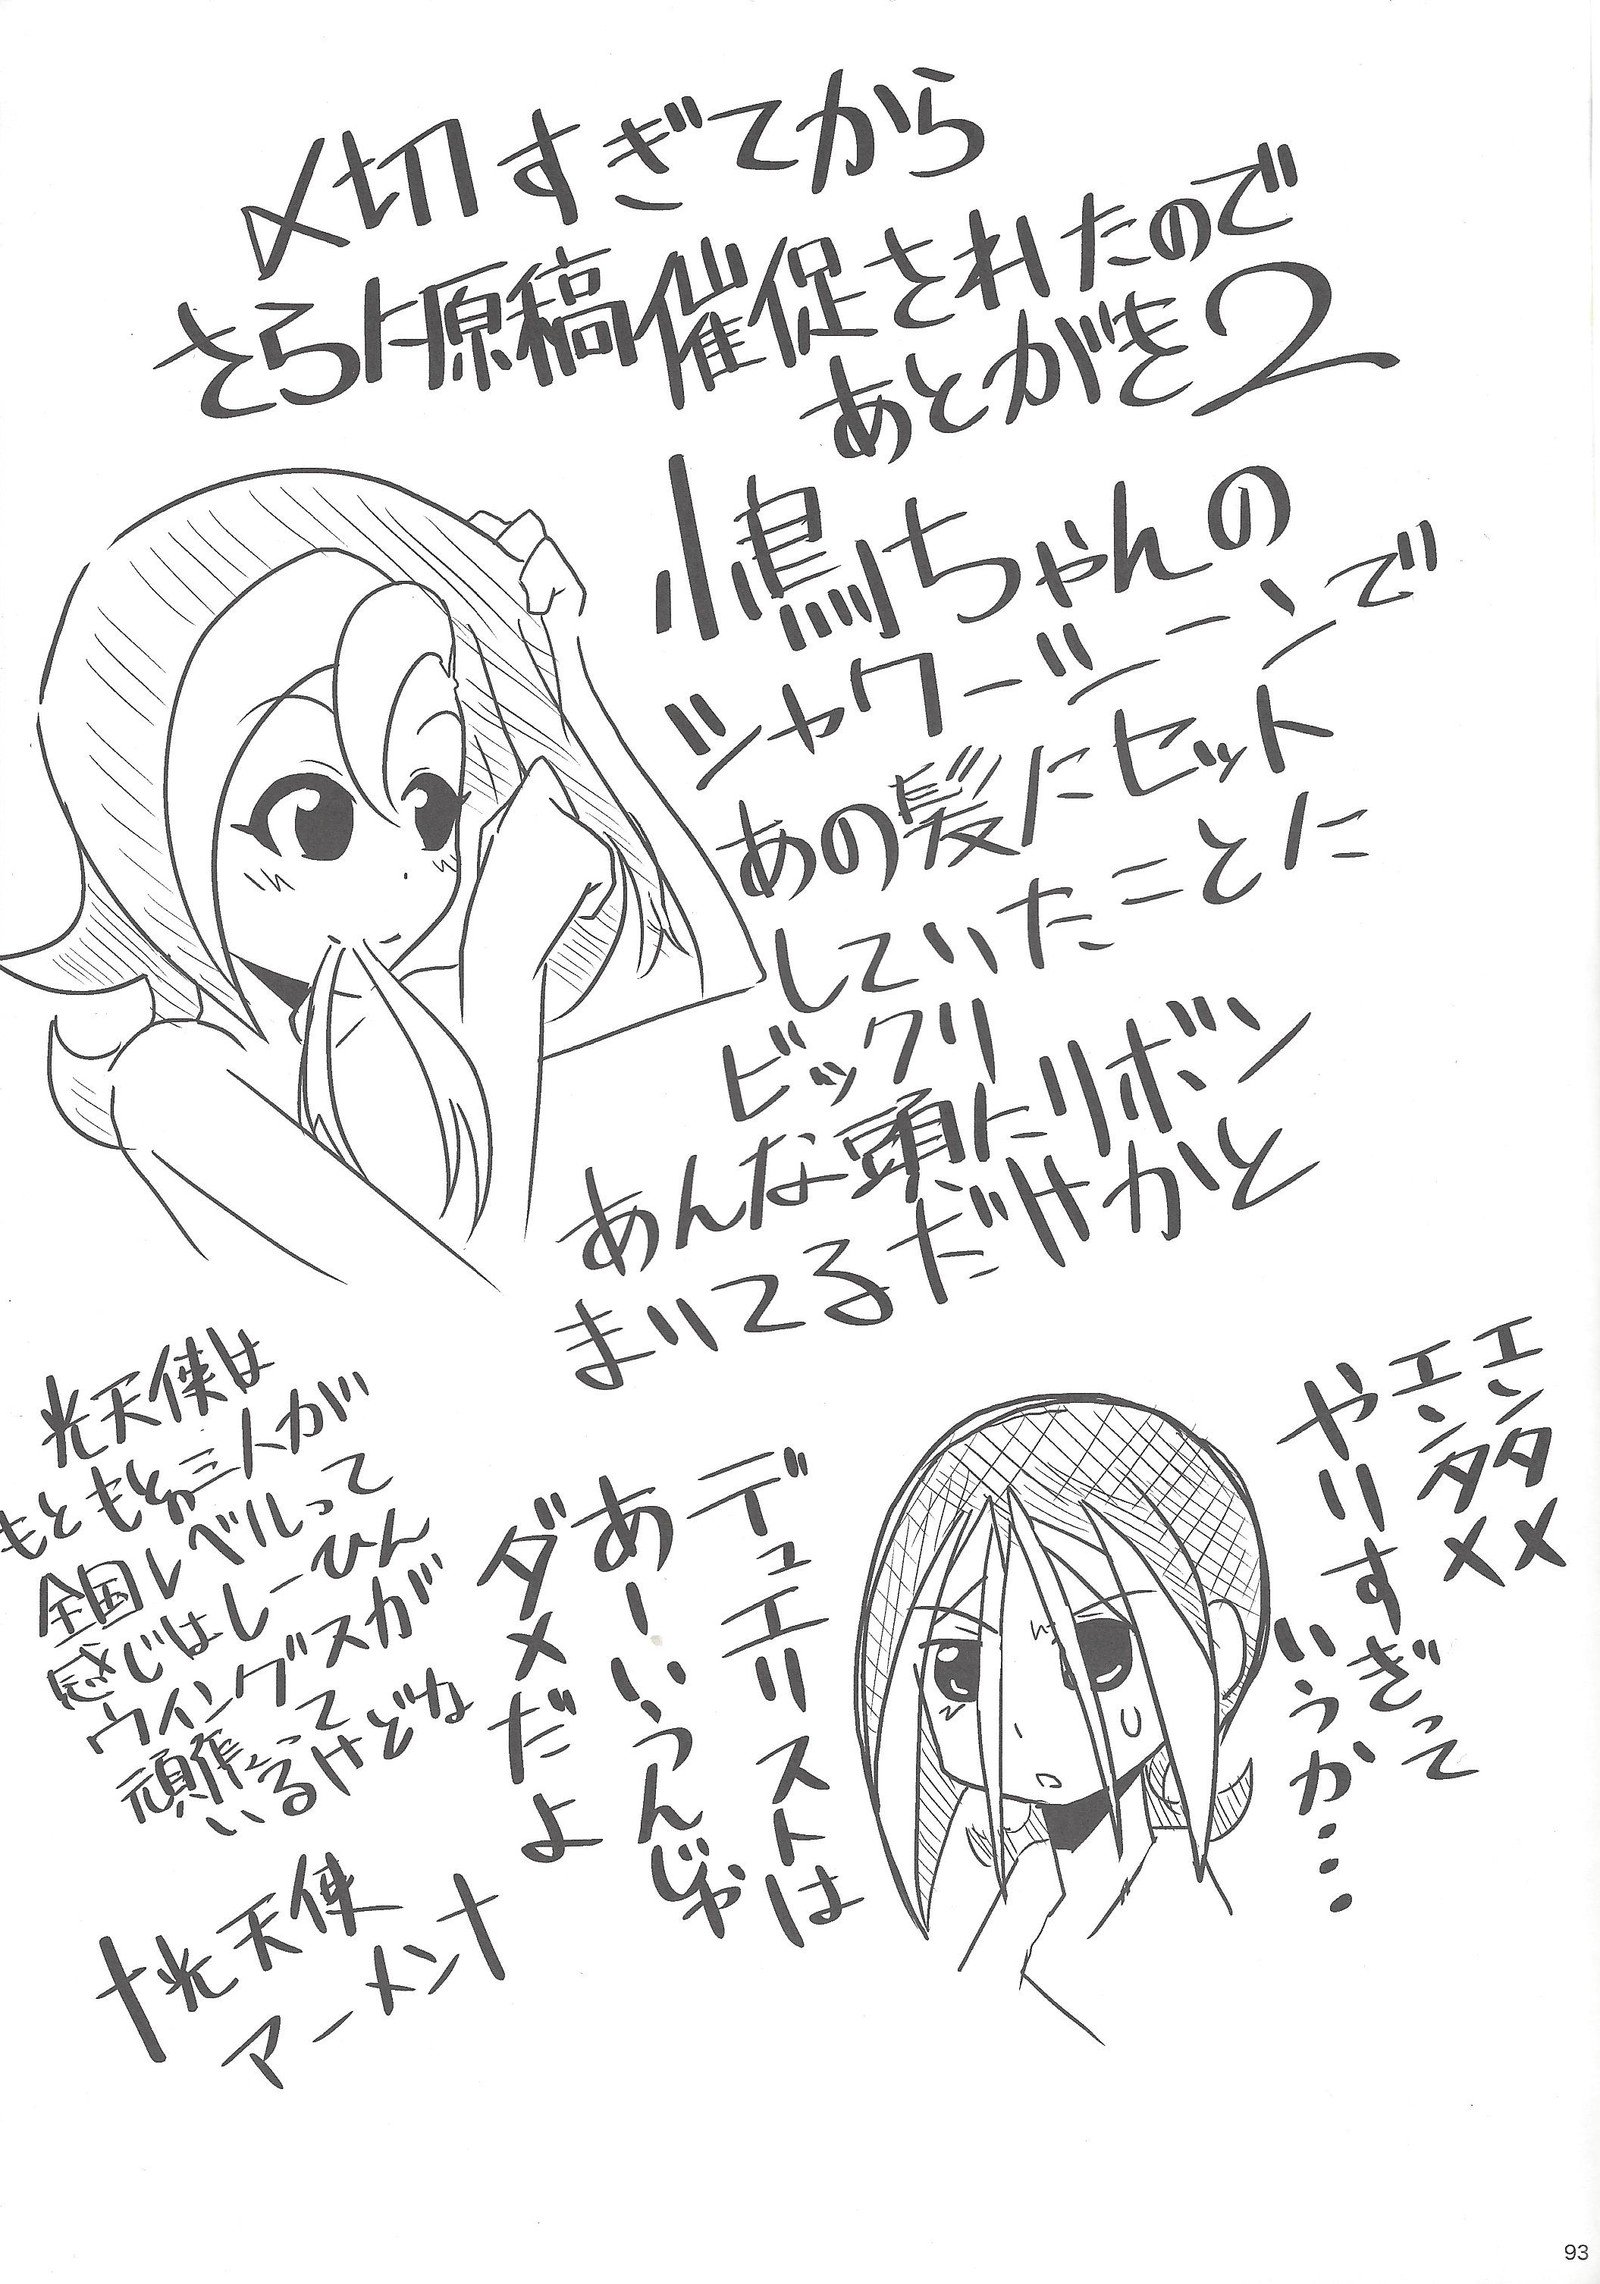 〆切すぎてから
さらに原稿催促されたので
あとがき2
小鳥ちゃんの
シャワーシーンで
あの髪にセット
していたことに
ビックリ
あんな頭にリボン
まいてるだけかと
エンタメ
エンタメ
やりすぎって
いうか…
デュエリストは
あーいうんじゃ
ダメだよ
光天使は
もともとお三人が
全国レベルって
感じはしーひん
ウイングスガ
頑張って
いるけどな
†光天使
アーメン†
93